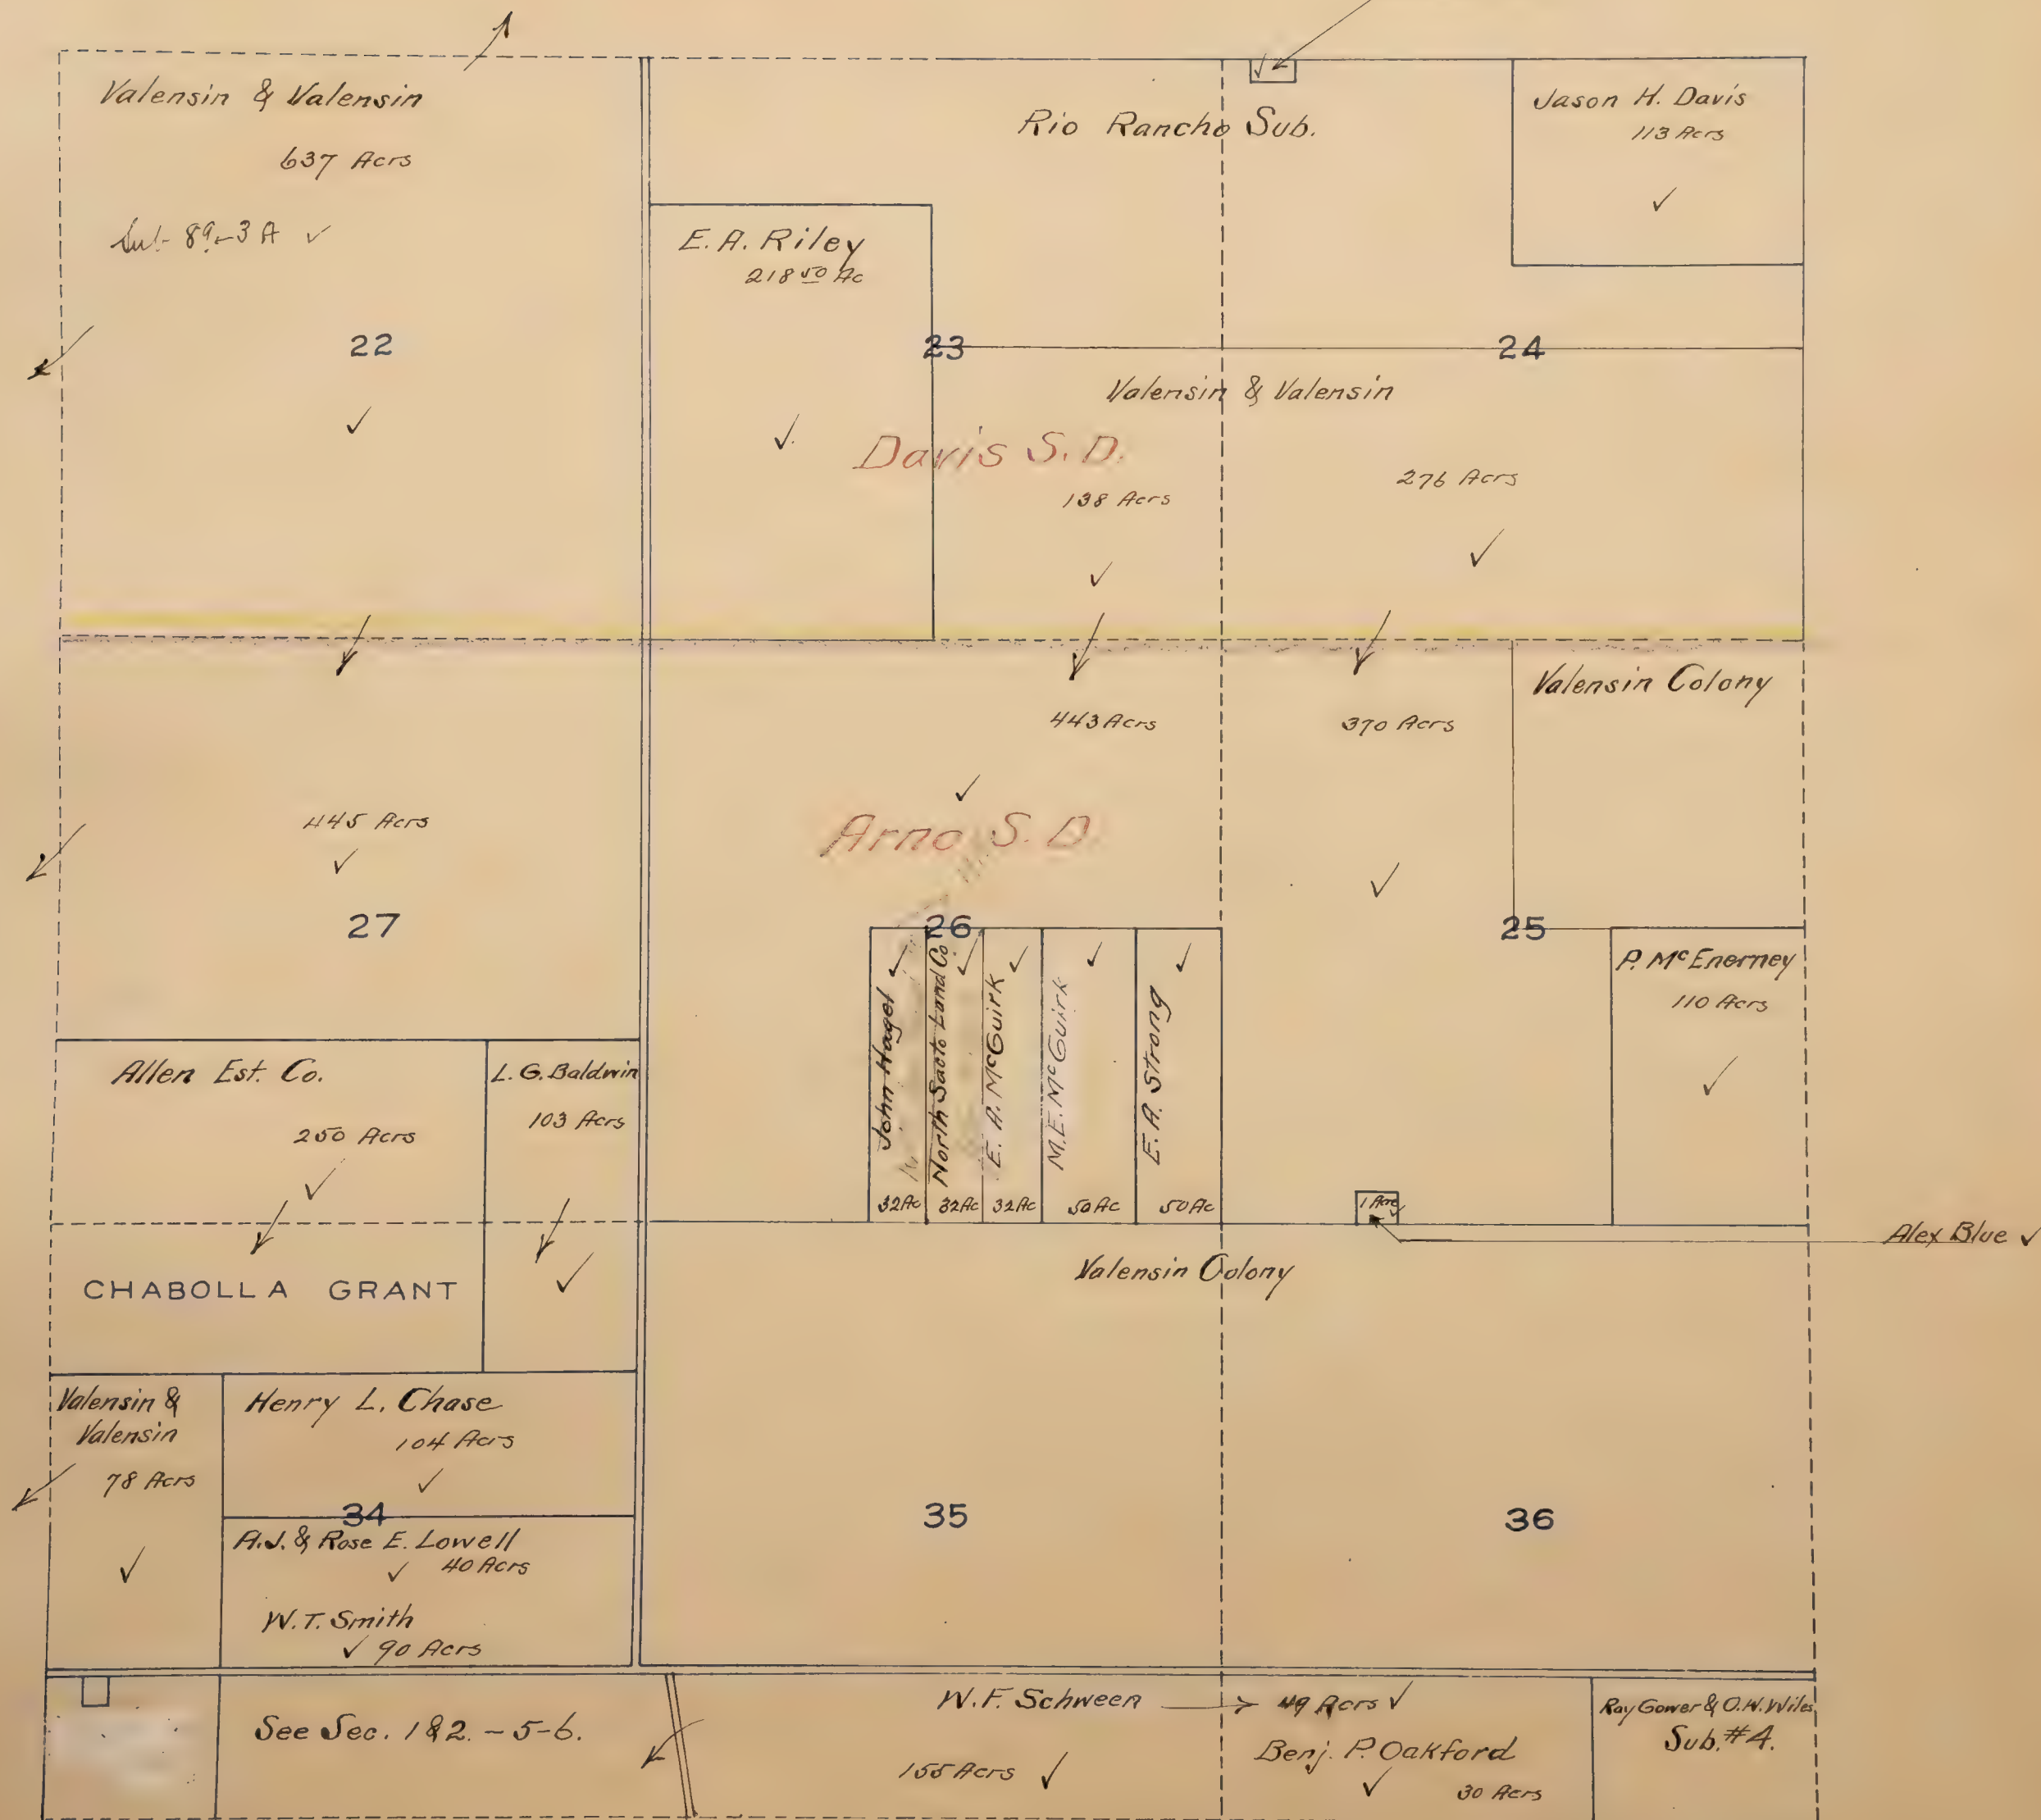 Valensin & Valensin
637 Acrs
22
Rio Rancho Sub.
Jason H. Davis
113 Acrs
E. A. Riley
218 50 Ac
23
24
Valensin & Valensin
Davis S. D.
138 Acrs
276 Acrs
443 Acrs
370 Acrs
Valensin Colony
445 Acrs
27
Arno S. D.
26
25
John Hagel
32 Ac
North Sacto Land Co
32 Ac
E. A. McGuirk
32 Ac
M. E. McGuirk
50 Ac
E. A. Strong
50 Ac
P. McEnerney
110 Acrs
1 Acre
Alex Blue
Allen Est. Co.
250 Acrs
L. G. Baldwin
103 Acrs
CHABOLLA GRANT
Valensin Colony
Valensin &
Valensin
78 Acrs
Henry L. Chase
104 Acrs
34
A. J. & Rose E. Lowell
40 Acrs
W. T. Smith
90 Acrs
35
36
See Sec. 1 & 2. - 5 - 6.
W. F. Schween
49 Acrs
155 Acrs
Benj. P. Oakford
30 Acrs
Ray Gower & O. W. Wiles
Sub. #4.